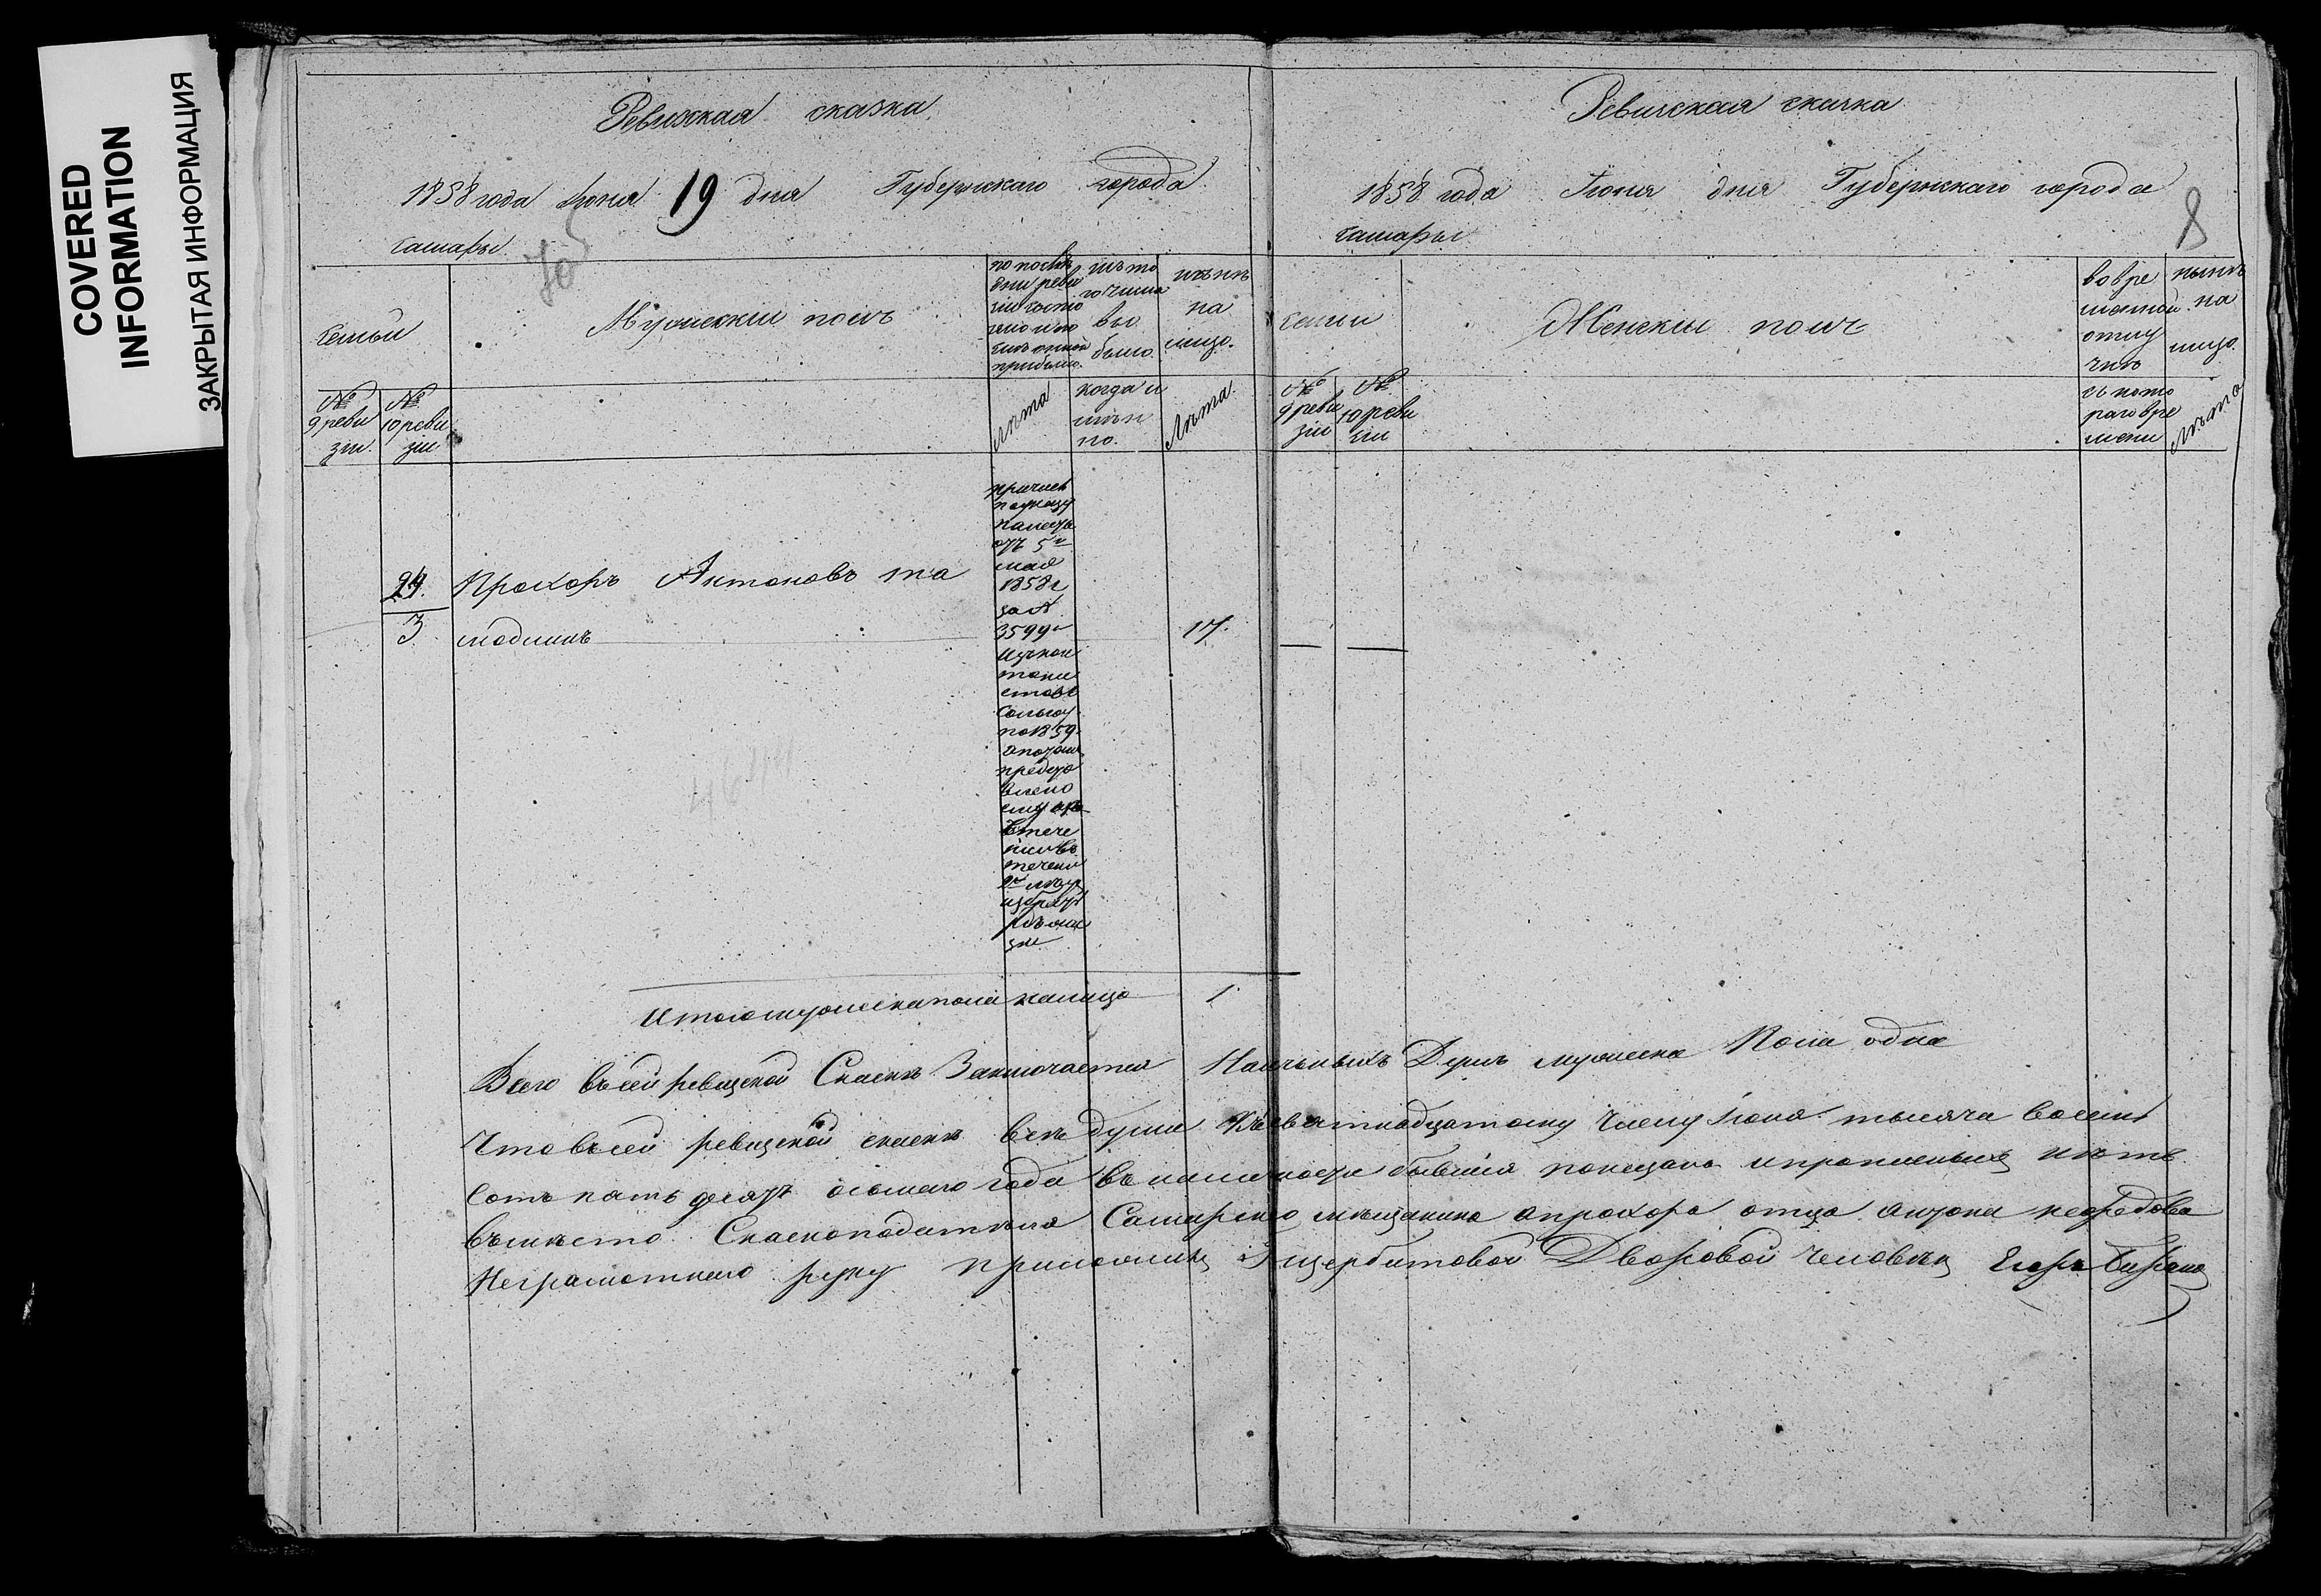 COVERED
INFORMATION
ЗАКРЫТАЯ ИНФОРМАЦИЯ
Ревизская сказка
1858 года Іюня 19 дня Губернскаго города
Самары
Семьи
Мужескій полъ
по послѣд
ней реви
зіи состо
яло и по
слѣ оной
прибыло.
изъ то
го числа
вы
было.
нынѣ
на
лицо.
№
9 реви
зіи.
№
10 реви
зіи
лѣта
когда и
имен
но.
Лѣта.
24.
3.
Прохоръ Антоновъ
причис
по указу
Палаты
отъ 5го
мая
1858 г
за №
3599
Изъ кан
тони
стовъ
по 1859
предо
влено
ему
течені
2хъ
17.
Итого мужеска пола налицо 1
Ревизская сказка
1858 года Іюня дня Губернскаго города
Самары
8
Семьи
Женскій полъ
во вре
менной
отлу
чкѣ
нынѣ
на
лицо.
№
9 реви
зіи
№
10 реви
зіи
съ кото
раго вре
мени
Лѣта
Всего въ сей ревизской Сказкѣ Заключается Наличныхъ Душъ мужеска Пола одна
Что въ сей ревизской сказкѣ всѣ души Къ девятнадцатому Числу Іюня тысяча восемь
Сотъ пять десятъ осьмаго года въ наличности бывшія показаны и пропущенныхъ нѣтъ
Въ мѣсто Сказкоподателя Самарскаго мѣщанина Прохора отца Антона
Неграмотнаго руку приложилъ Дворовой Человѣкъ Егоръ